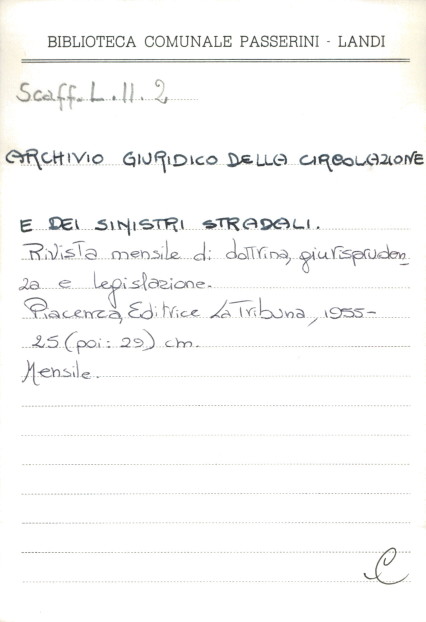 BIBLIOTECA COMUNALE PASSERINI - LANDI
Scaff. L. 11. 2
ARCHIVIO GIURIDICO DELLA CIRCOLAZIONE
E DEI SINISTRI STRADALI.
Rivista mensile di dottrina, giurispruden
za e legislazione.
Piacenza, Editrice La Tribuna, 1955-
25 (poi: 29) cm.
Mensile.
C